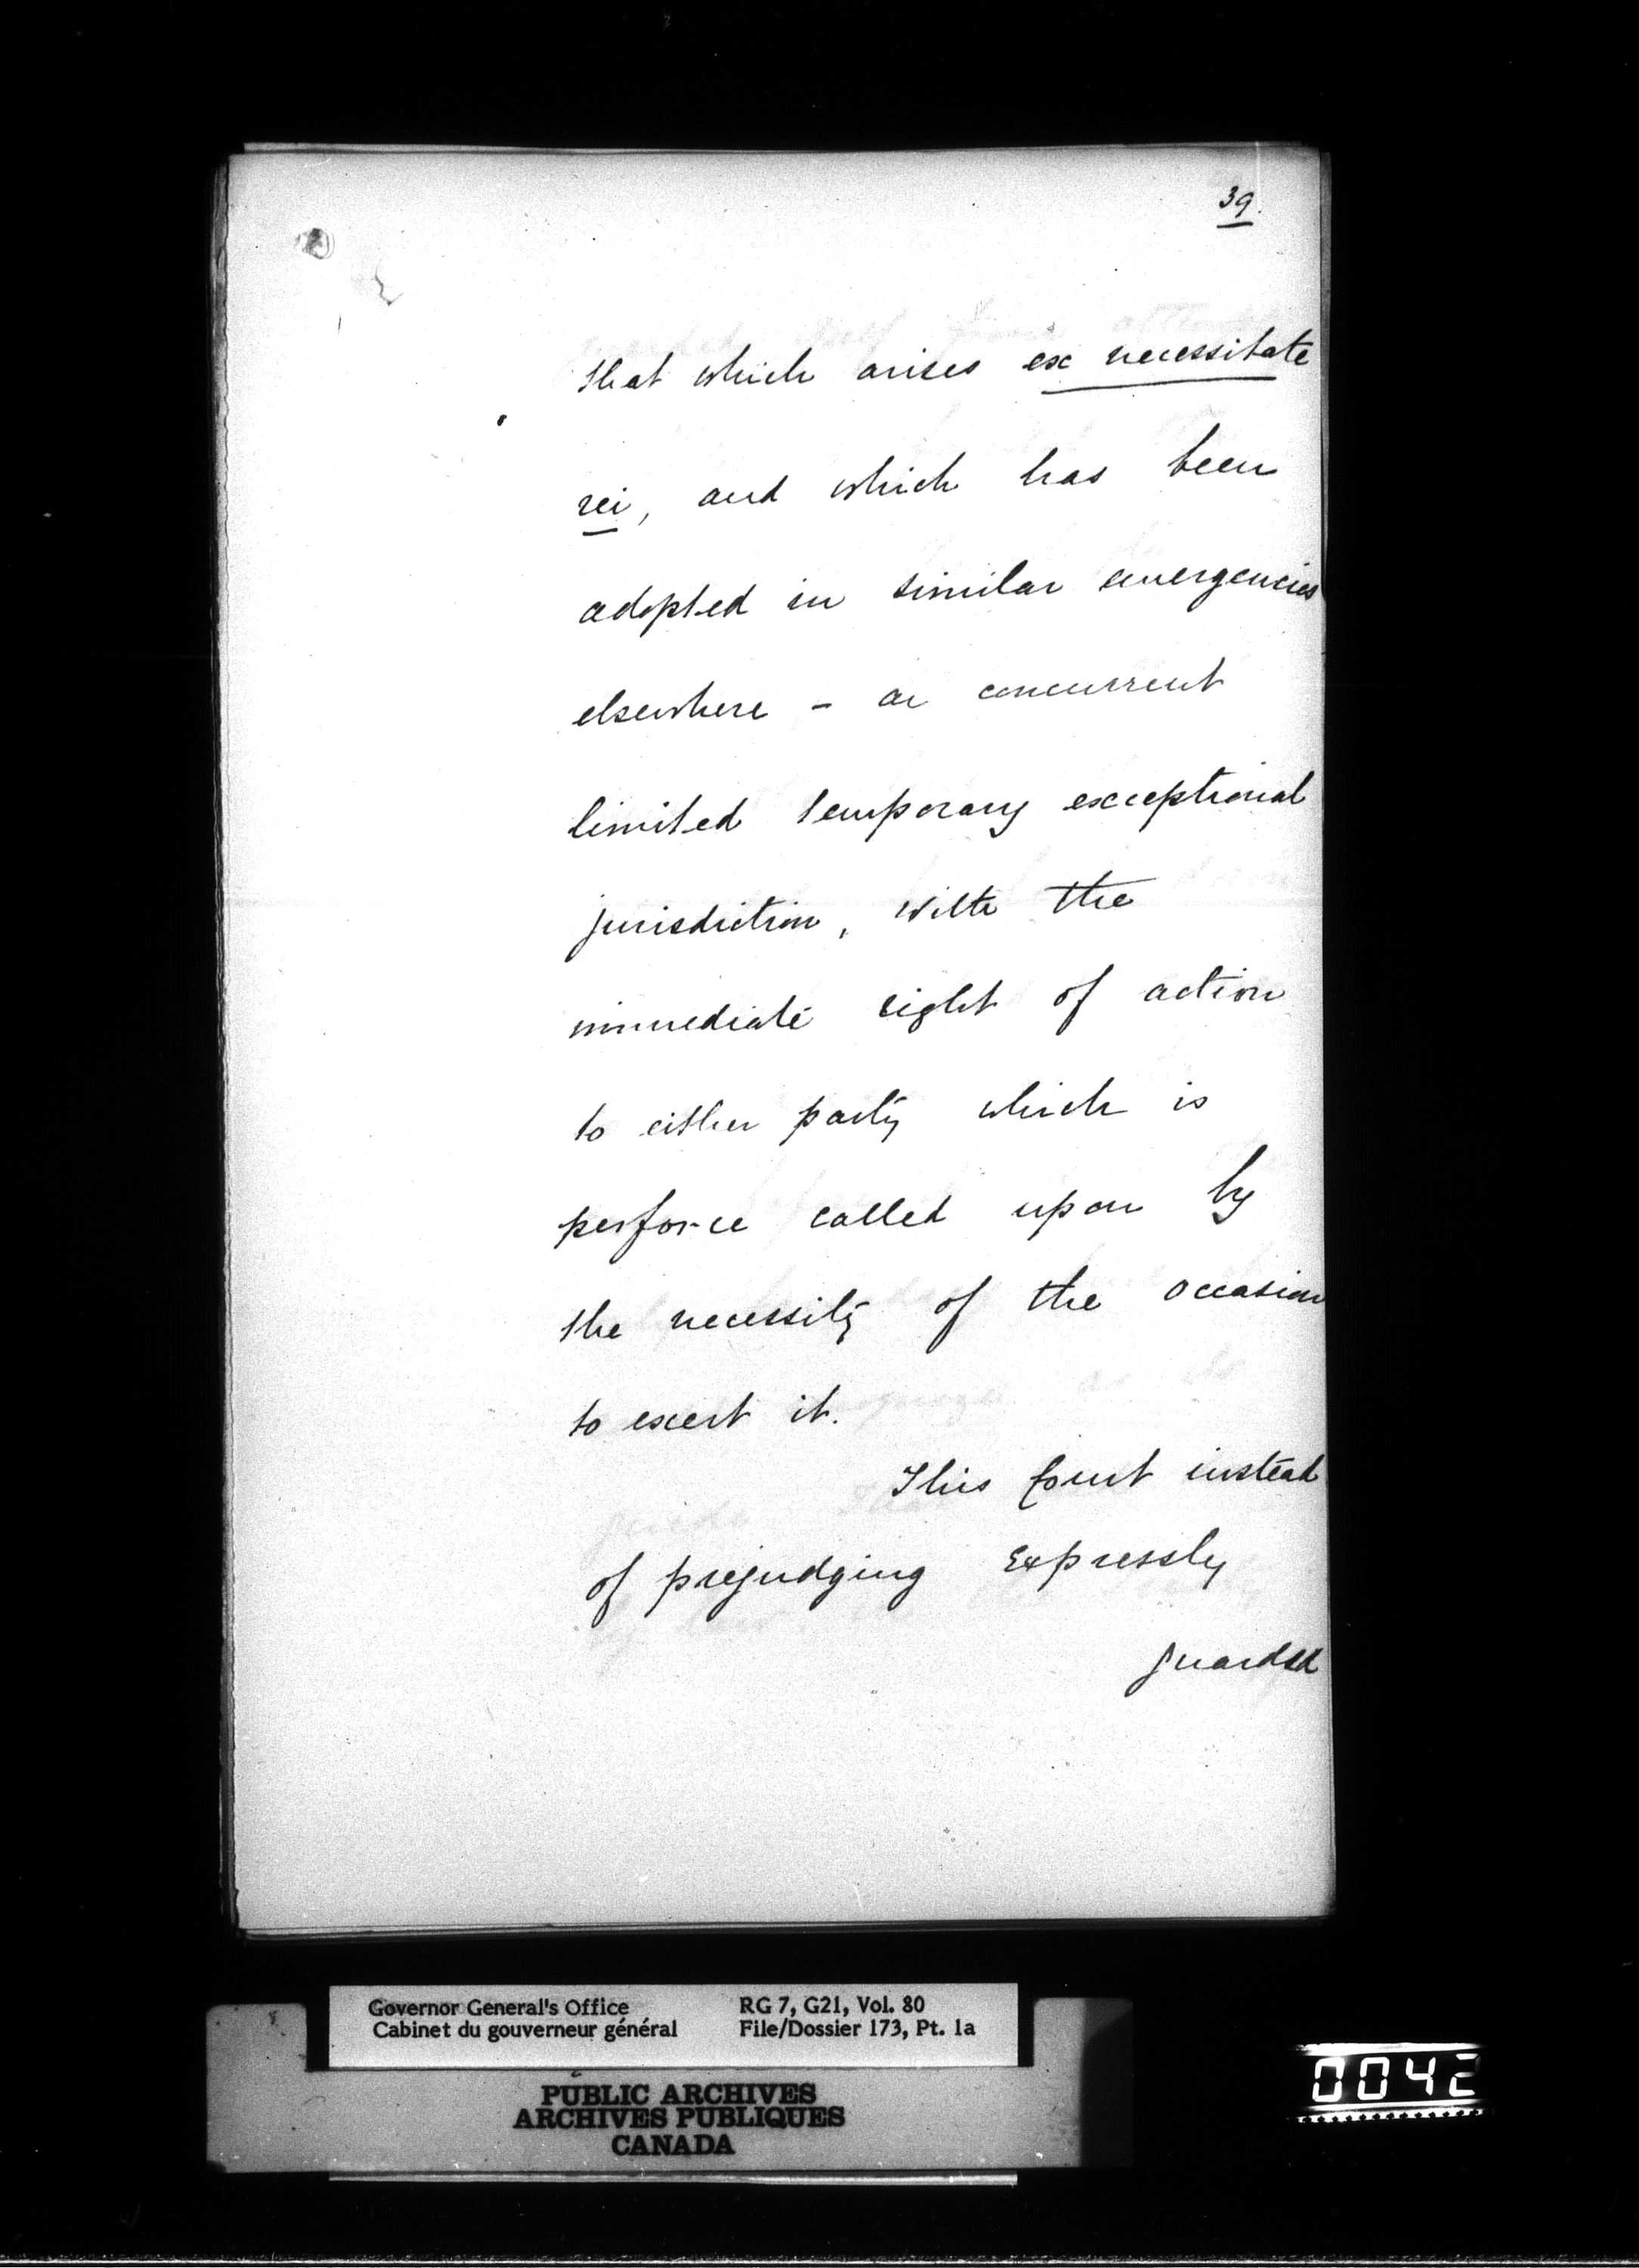 39.
that which arises ex necessitate
rei, and which has been
adopted in similar emergencies
elsewhere - a concurrent
limited temporary exceptional
jurisdiction, with the
immediate right of action
to either party which is
perforce called upon by
the necessity of the occasion
to exert it.
This Court instead
of prejudging expressly
guarded
Governor General's Office RG 7, G21, Vol. 80
Cabinet du gouverneur général File/Dossier 173, Pt. 1a
PUBLIC ARCHIVES
ARCHIVES PUBLIQUES
CANADA
0042